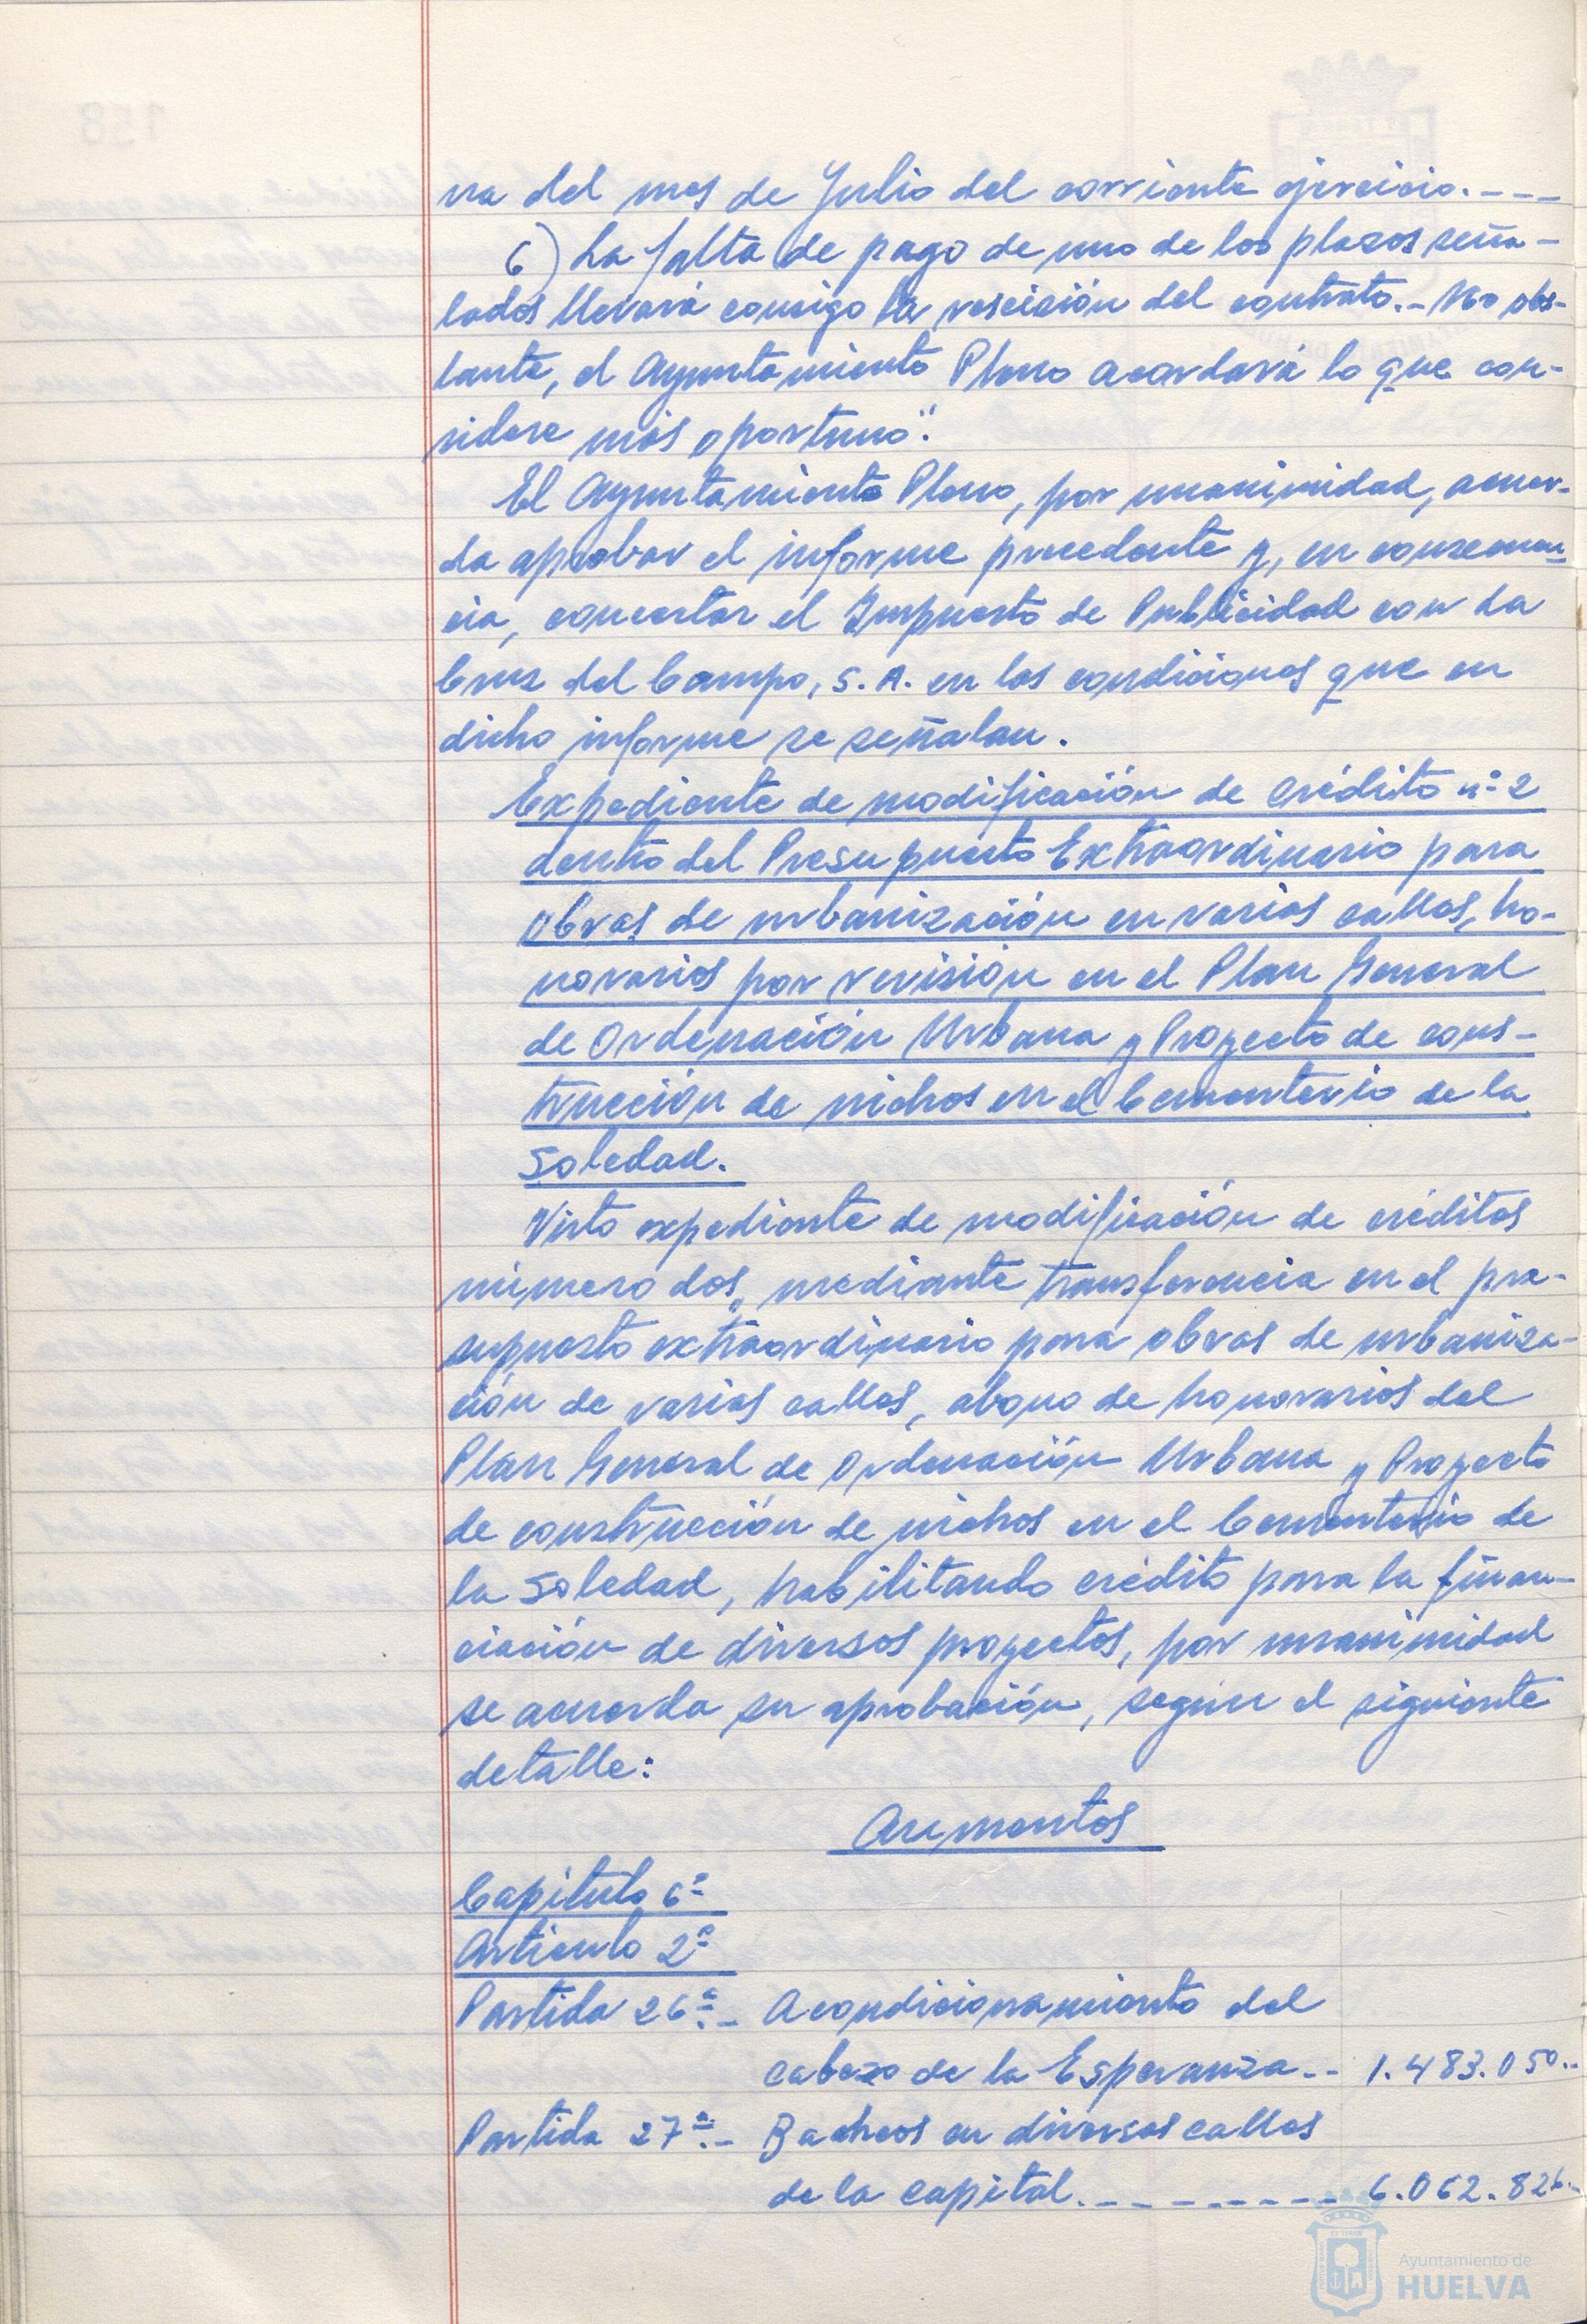 na del mes de Julio del corriente ejercicio.----
6) La falta de pago de uno de los plazos seña-
lados llevará consigo la rescisión del contrato.- No obs-
tante, el Ayuntamiento Pleno acordará lo que con-
sidere más oportuno".
El Ayuntamiento Pleno, por unanimidad, acuer-
da aprobar el informe precedente y, en consecuen-
cia, concertar el Impuesto de Publicidad con La
Cruz del Campo, S.A. en las condiciones que en
dicho informe se señalan.
Expediente de modificación de crédito nº 2
dentro del Presupuesto Extraordinario para
obras de urbanización en varias calles, ho-
norarios por revisión en el Plan General
de Ordenación Urbana y Proyecto de cons-
trucción de nichos en el Cementerio de la
Soledad.
Visto expediente de modificación de créditos
número dos, mediante transferencia en el pre-
supuesto extraordinario para obras de urbaniza-
ción de varias calles, abono de honorarios del
Plan General de Ordenación Urbana y Proyecto
de construcción de nichos en el Cementerio de
la Soledad, habilitando crédito para la finan-
ciación de diversos proyectos, por unanimidad
se acuerda su aprobación, según el siguiente
detalle:
Aumentos
Capítulo 6º
Artículo 2º
Partida 26ª.- Acondicionamiento del
Cabezo de la Esperanza.-- 1.483.050..
Partida 27ª.- Bacheos en diversas calles
de la capital.--------- 6.062.826.-
Ayuntamiento de
HUELVA